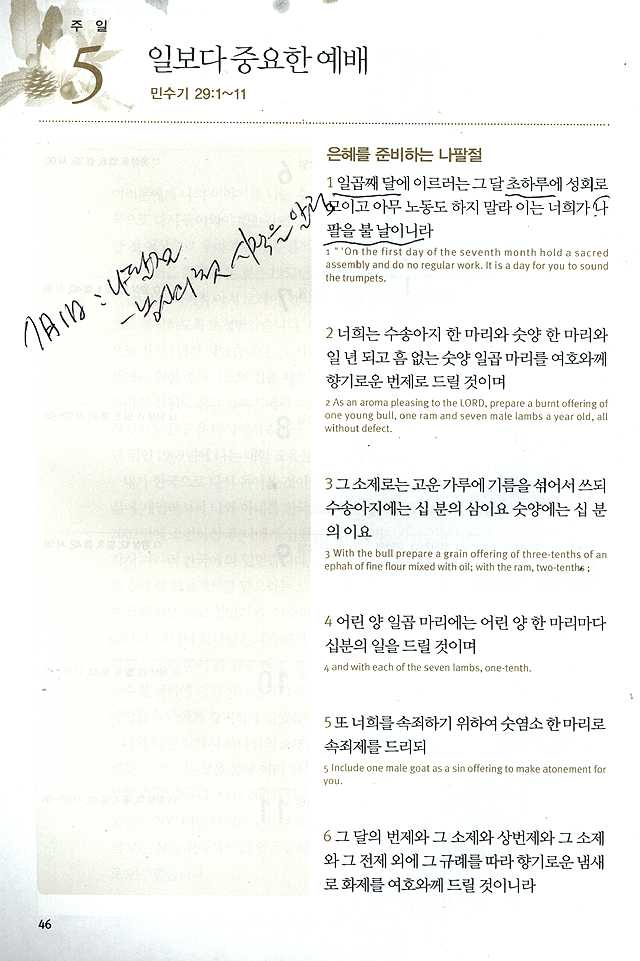 주 일
5
일보다 중요한 예배
민수기 29:1~11
은혜를 준비하는 나팔절
1 일곱째 달에 이르러는 그 달 초하루에 성회로
모이고 아무 노동도 하지 말라 이는 너희가 나
팔을 불 날이니라
1 " 'On the first day of the seventh month hold a sacred
assembly and do no regular work. It is a day for you to sound
the trumpets.
7월1일 :
2 너희는 수송아지 한 마리와 숫양 한 마리와
일 년 되고 흠 없는 숫양 일곱 마리를 여호와께
향기로운 번제로 드릴 것이며
2 As an aroma pleasing to the LORD, prepare a burnt offering of
one young bull, one ram and seven male lambs a year old, all
without defect.
3 그 소제로는 고운 가루에 기름을 섞어서 쓰되
수송아지에는 십 분의 삼이요 숫양에는 십 분
의 이요
3 With the bull prepare a grain offering of three-tenths of an
ephah of fine flour mixed with oil; with the ram, two-tenths ;
4 어린 양 일곱 마리에는 어린 양 한 마리마다
십분의 일을 드릴 것이며
4 and with each of the seven lambs, one-tenth.
5 또 너희를 속죄하기 위하여 숫염소 한 마리로
속죄제를 드리되
5 Include one male goat as a sin offering to make atonement for
you.
6 그 달의 번제와 그 소제와 상번제와 그 소제
와 그 전제 외에 그 규례를 따라 향기로운 냄새
로 화제를 여호와께 드릴 것이니라
46